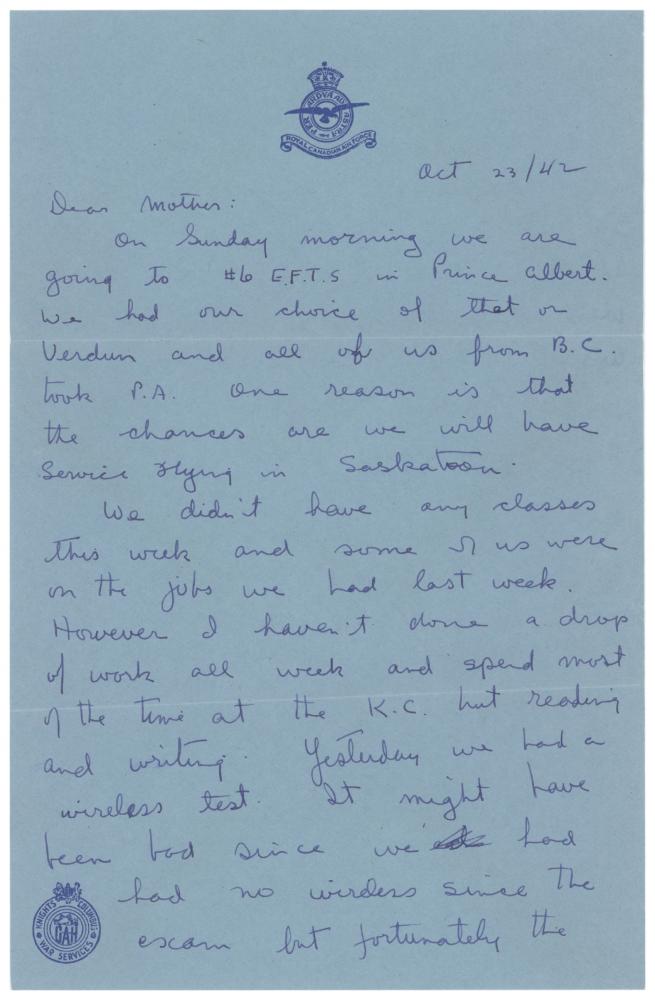 PER ARDVA AD ASTRA
ROYAL CANADIAN AIR FORCE
Oct 23/42
Dear Mother:
On Sunday morning we are
going to #6 E.F.T.S in Prince Albert.
We had our choice of that or
Verdun and all of us from B.C.
took P.A. One reason is that
the chances are we will have
Service Flying in Saskatoon.
We didn't have any classes
this week and some of us were
on the jobs we had last week.
However I haven't done a drop
of work all week and spend most
of the time at the K.C. hut reading
and writing. Yesterday we had a
wireless test. It might have
been bad since we had
had no wireless since the
exam but fortunately the
KNIGHTS OF COLUMBUS
CAH
WAR SERVICES